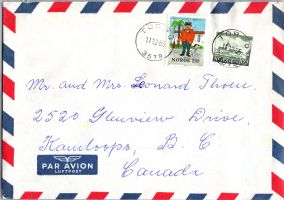 11 12 85
3579
NORGE
Mr. and Mrs. Leonard Throu
2520 Glenview Drive,
Kamloops, B. C
Canada
PAR AVION
LUFTPOST